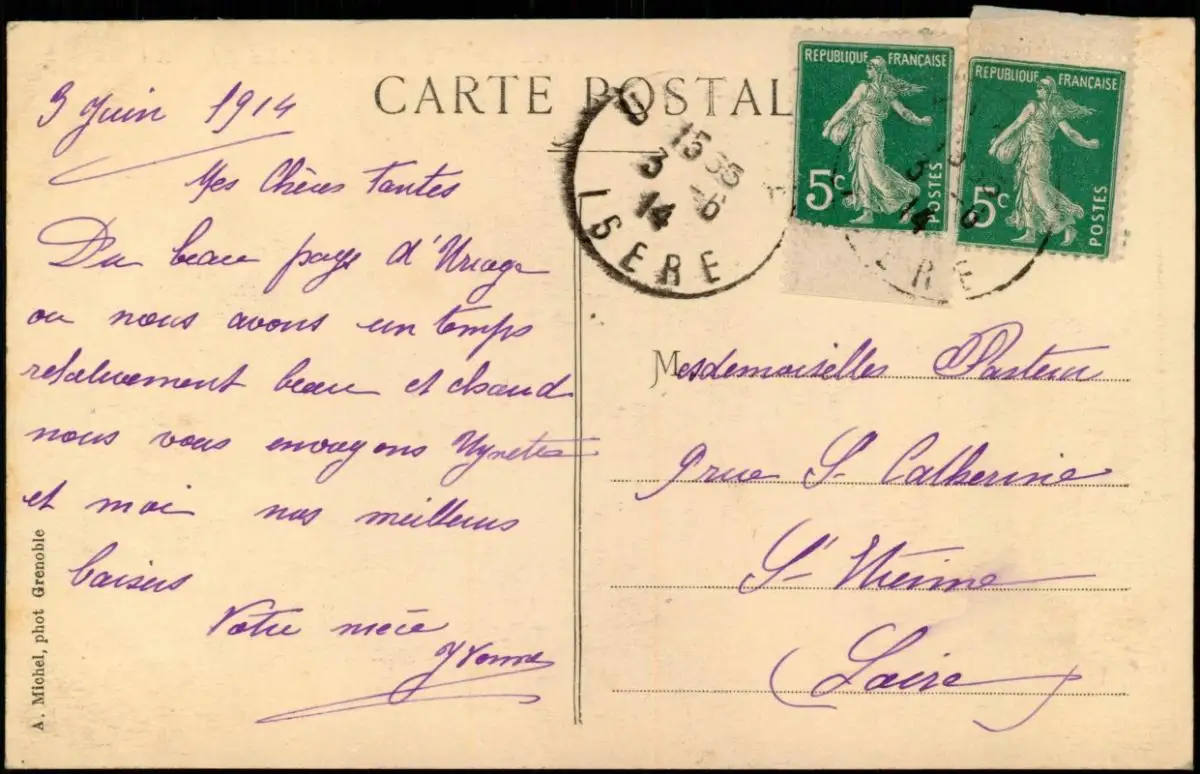 CARTE POSTALE
3 Juin 1914
Mes Chères Tantes
Du beau pays d'Uriage
ou nous avons un temps
relativement beau et chaud
nous vous envoyons
et moi nos meilleurs
baisers
Votre nièce
Yvonne
A. Michel, phot Grenoble
15 35
3 -6
14
ISERE
REPUBLIQUE FRANÇAISE
5c
POSTES
REPUBLIQUE FRANÇAISE
5c
POSTES
Mesdemoiselles Pasteur
9 rue St Catherine
St Etienne
(Loire)